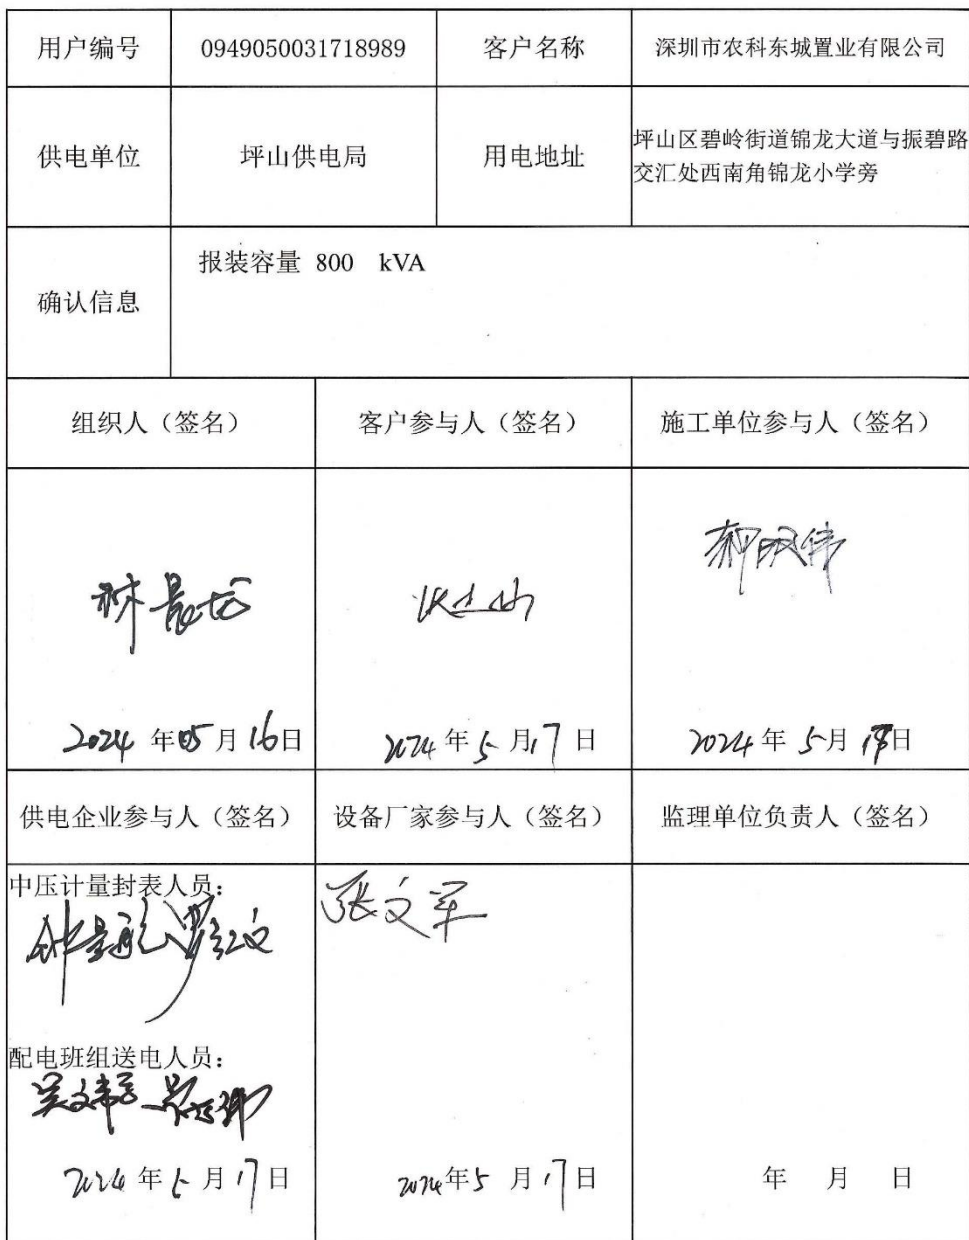 用户编号 0949050031718989 客户名称 深圳市农科东城置业有限公司
供电单位 坪山供电局 用电地址 坪山区碧岭街道锦龙大道与振碧路
交汇处西南角锦龙小学旁
确认信息 报装容量 800 kVA
组织人（签名） 客户参与人（签名） 施工单位参与人（签名）
2024 年 05 月 16 日 2024 年 5 月 17 日 2024 年 5 月 日
供电企业参与人（签名） 设备厂家参与人（签名） 监理单位负责人（签名）
中压计量封表人员：
张文军
配电班组送电人员：
2024 年 5 月 17 日 2024 年 5 月 17 日 年 月 日